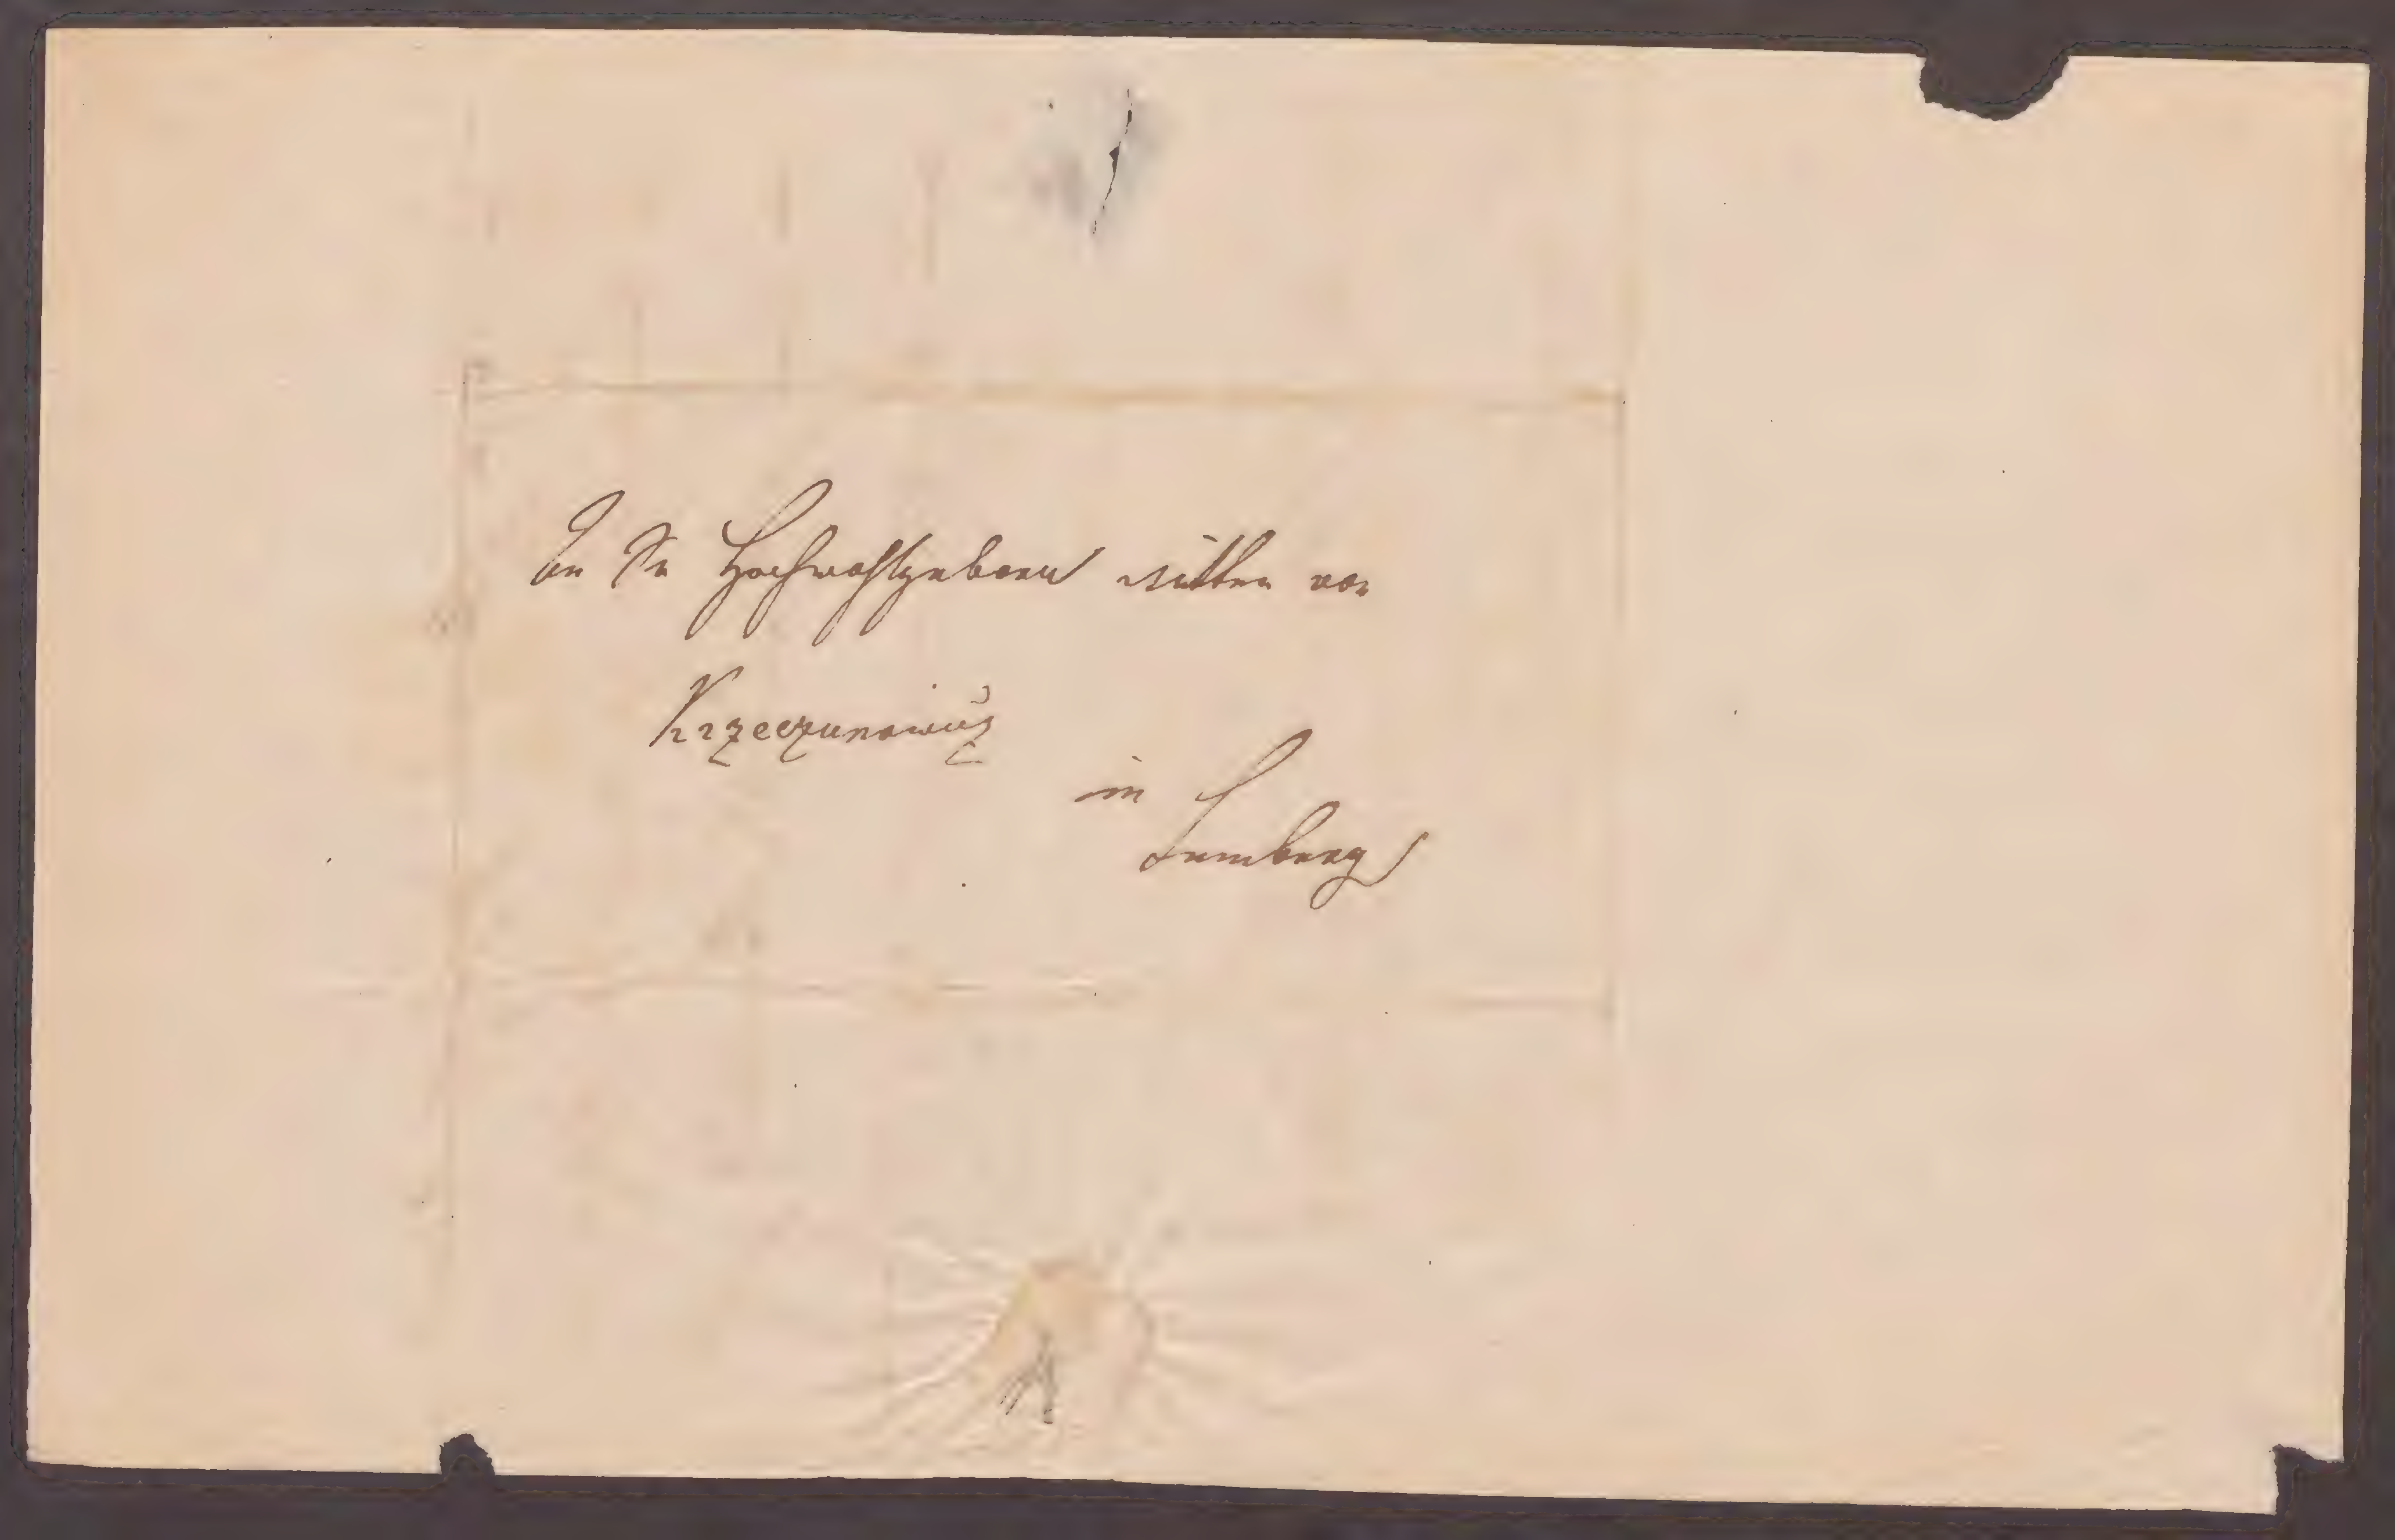 An Sr Hochwohlgeborn Ritter von
Krzeczunowicz
in
Lemberg